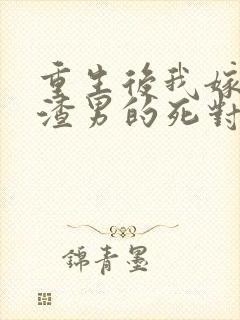 重生後我嫁
渣男的死對
錦青墨